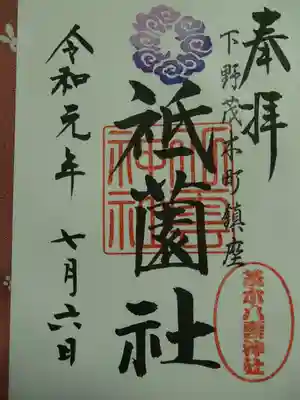 奉拝
下野茂木町鎮座
祇園社
八雲神社
茂木八雲神社
令和元年 七月六日